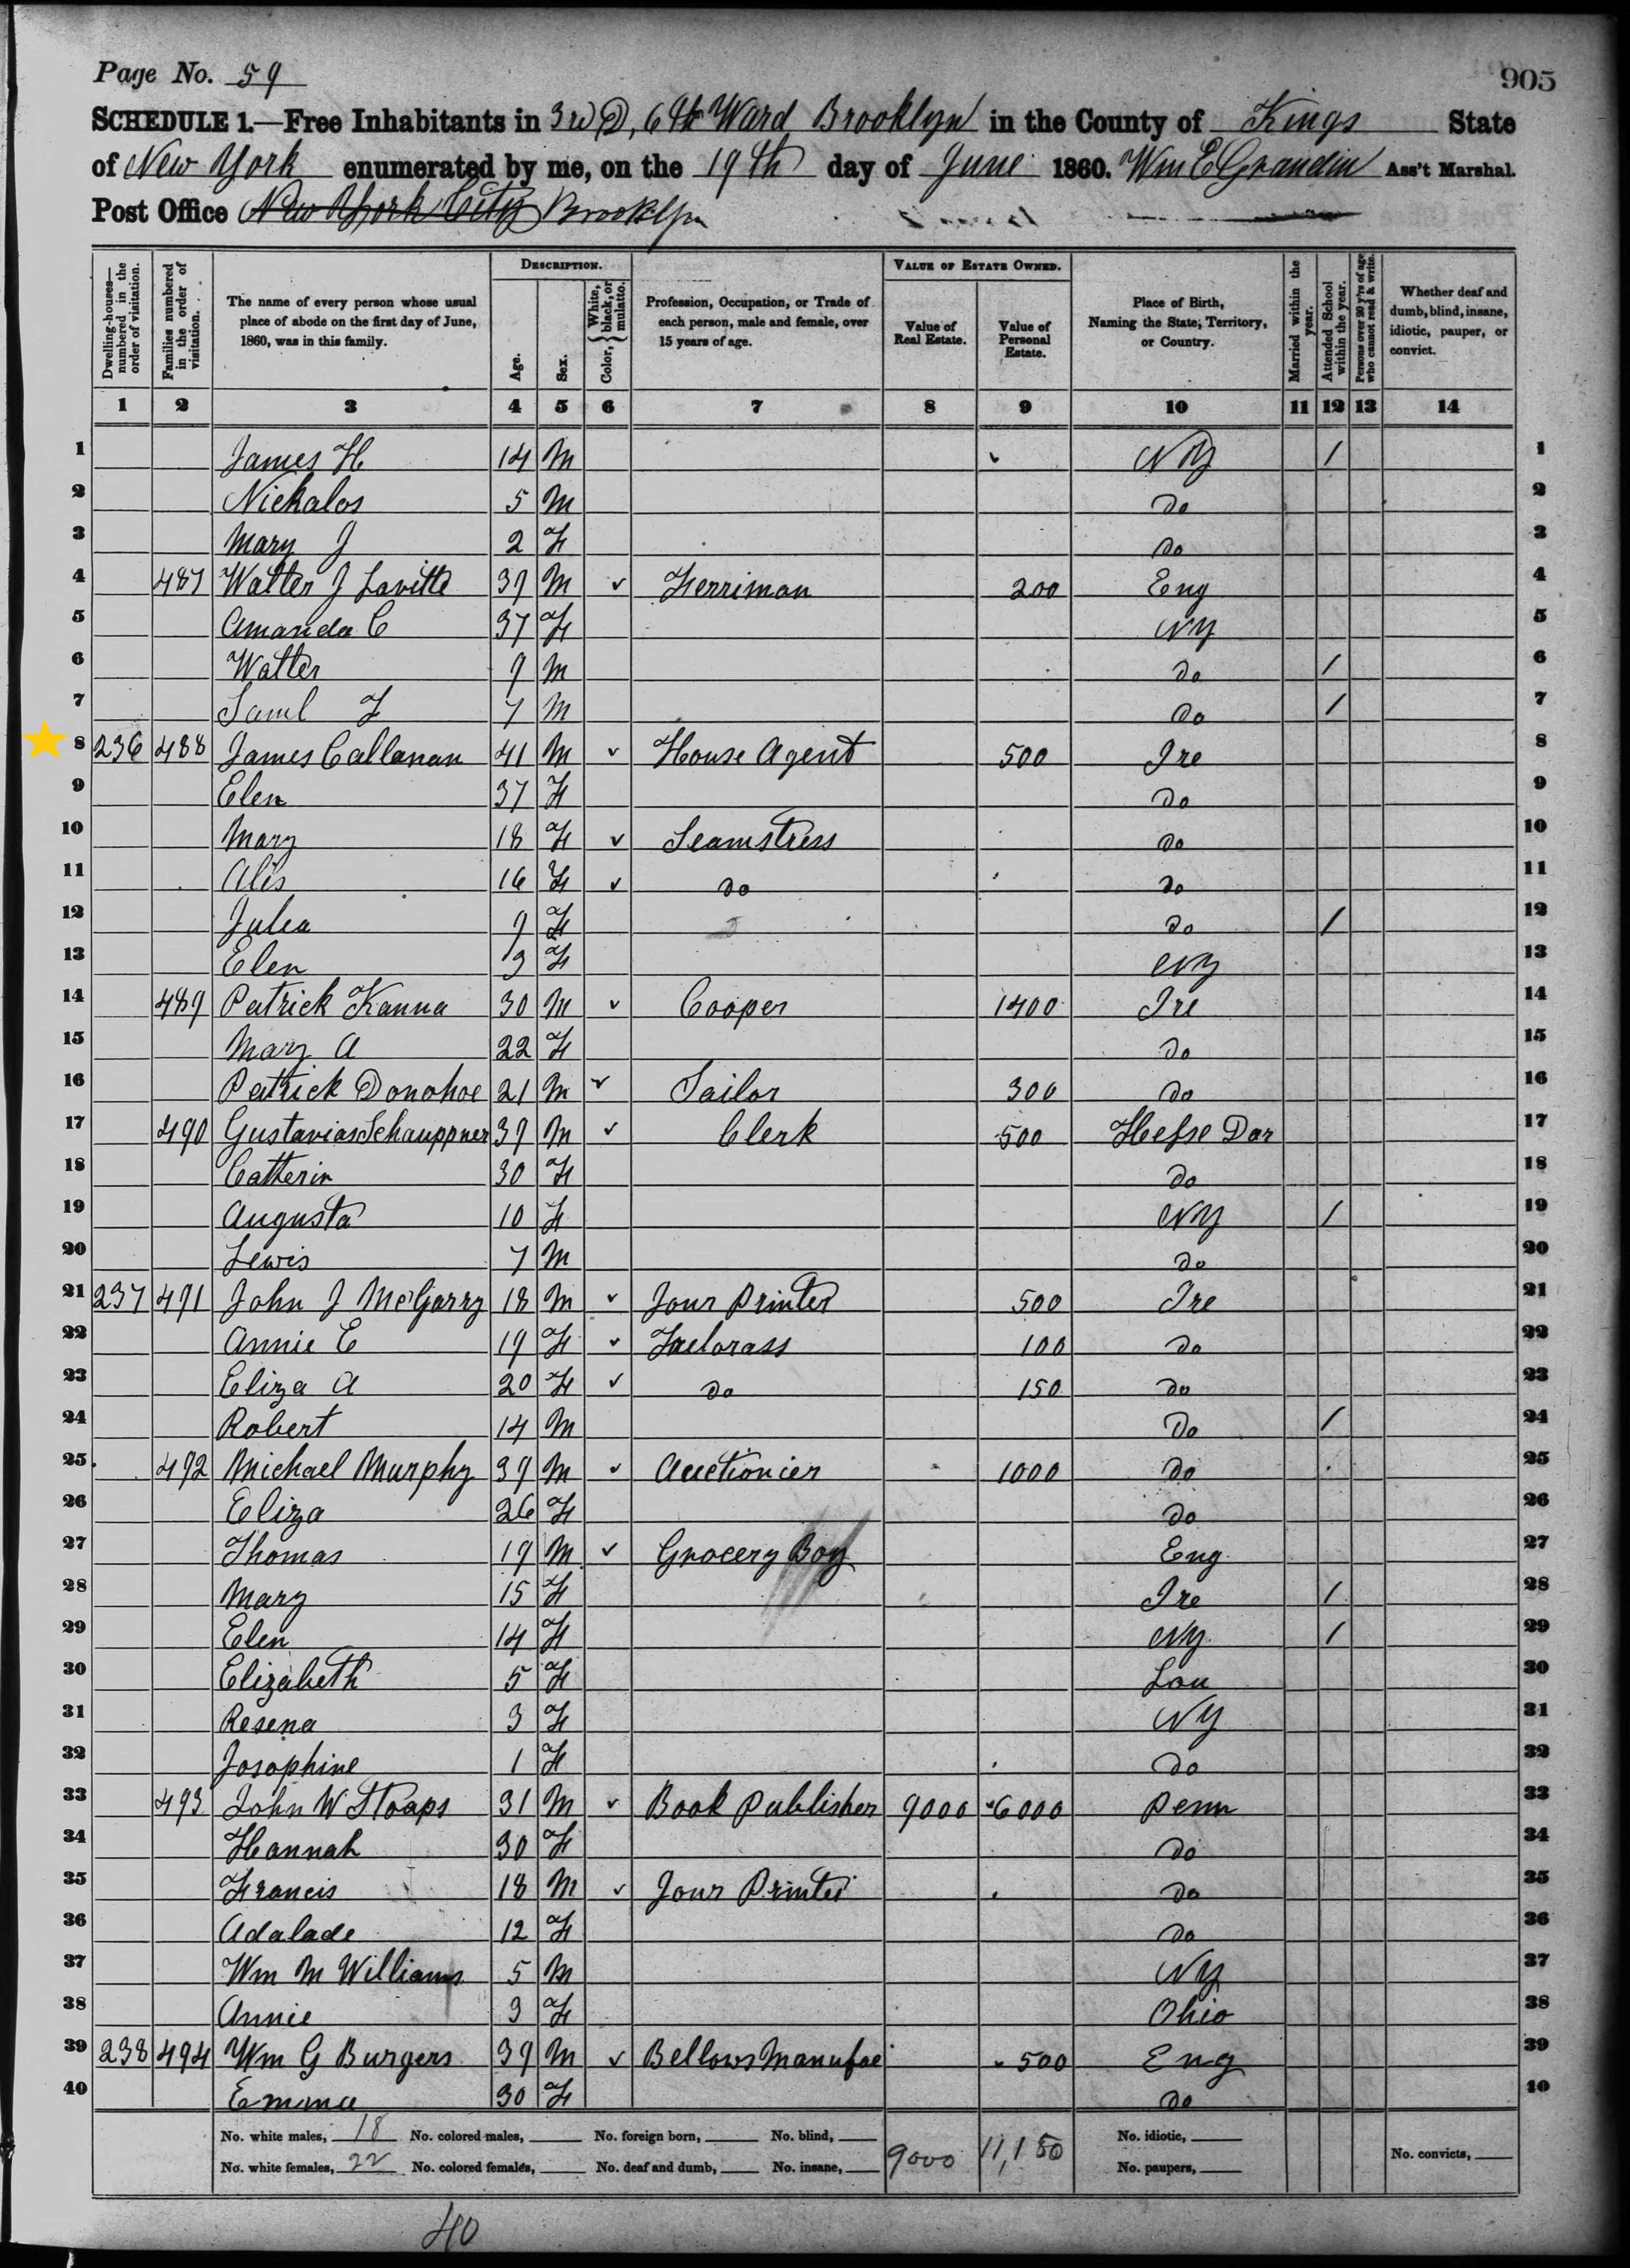 Page No. 59
905
SCHEDULE 1.—Free Inhabitants in 3rd D, 6th Ward Brooklyn in the County of Kings State
of New York enumerated by me, on the 19th day of June 1860. Wm E Grandin Ass't Marshal.
Post Office New York City Brooklyn
Dwelling-houses—numbered in the order of visitation.
Families numbered in the order of visitation.
The name of every person whose usual place of abode on the first day of June, 1860, was in this family.
DESCRIPTION.
Age.
Sex.
Color, { White, black, or mulatto.
Profession, Occupation, or Trade of each person, male and female, over 15 years of age.
VALUE OF ESTATE OWNED.
Value of Real Estate.
Value of Personal Estate.
Place of Birth, Naming the State, Territory, or Country.
Married within the year.
Attended School within the year.
Persons over 20 y'rs of age who cannot read & write.
Whether deaf and dumb, blind, insane, idiotic, pauper, or convict.
1 2 3 4 5 6 7 8 9 10 11 12 13 14
1 James H 14 M NY / 1
2 Nickalos 5 M Do 2
3 Mary J 2 F Do 3
4 487 Walter J Lavitte 39 M ✓ Ferriman 200 Eng 4
5 Amanda C 37 F NY 5
6 Walter 9 M Do / 6
7 Saml F 7 M Do / 7
8 236 488 James Callanan 41 M ✓ House Agent 500 Ire 8
9 Elen 37 F Do 9
10 Mary 18 F ✓ Seamstress Do 10
11 Alis 16 F ✓ Do Do 11
12 Julea 9 F Do / 12
13 Elen 3 F NY 13
14 489 Patrick Kanna 30 M ✓ Cooper 1400 Ire 14
15 Mary A 22 F Do 15
16 Patrick Donohoe 21 M ✓ Sailor 300 Do 16
17 490 Gustavias Schauppner 39 M ✓ Clerk 500 Hesse Dar 17
18 Catherin 30 F Do 18
19 Augusta 10 F NY / 19
20 Lewis 7 M Do 20
21 237 491 John J McGarry 18 M ✓ Jour Printer 500 Ire 21
22 Annie E 19 F ✓ Taelorass 100 Do 22
23 Eliza A 20 F ✓ Do 150 Do 23
24 Robert 14 M Do / 24
25 492 Michael Murphy 39 M ✓ Auctionier 1000 Do 25
26 Eliza 26 F Do 26
27 Thomas 19 M ✓ Grocery Boy Eng 27
28 Mary 15 F Ire / 28
29 Elen 14 F NY / 29
30 Elizabeth 5 F Lou 30
31 Resena 3 F NY 31
32 Josophine 1 F Do 32
33 493 John W Stoaps 31 M ✓ Book Publisher 9000 6000 Penn 33
34 Hannah 30 F Do 34
35 Francis 18 M ✓ Jour Printer Do 35
36 Adalade 12 F Do 36
37 Wm M Williams 5 M NY 37
38 Annie 3 F Ohio 38
39 238 494 Wm G Burgers 39 M ✓ Bellows Manufac 500 Eng 39
40 Emma 30 F Do 40
No. white males, 18 No. colored males, No. foreign born, No. blind, No. idiotic,
No. white females, 22 No. colored females, No. deaf and dumb, No. insane, 9000 11,150 No. paupers, No. convicts,
40